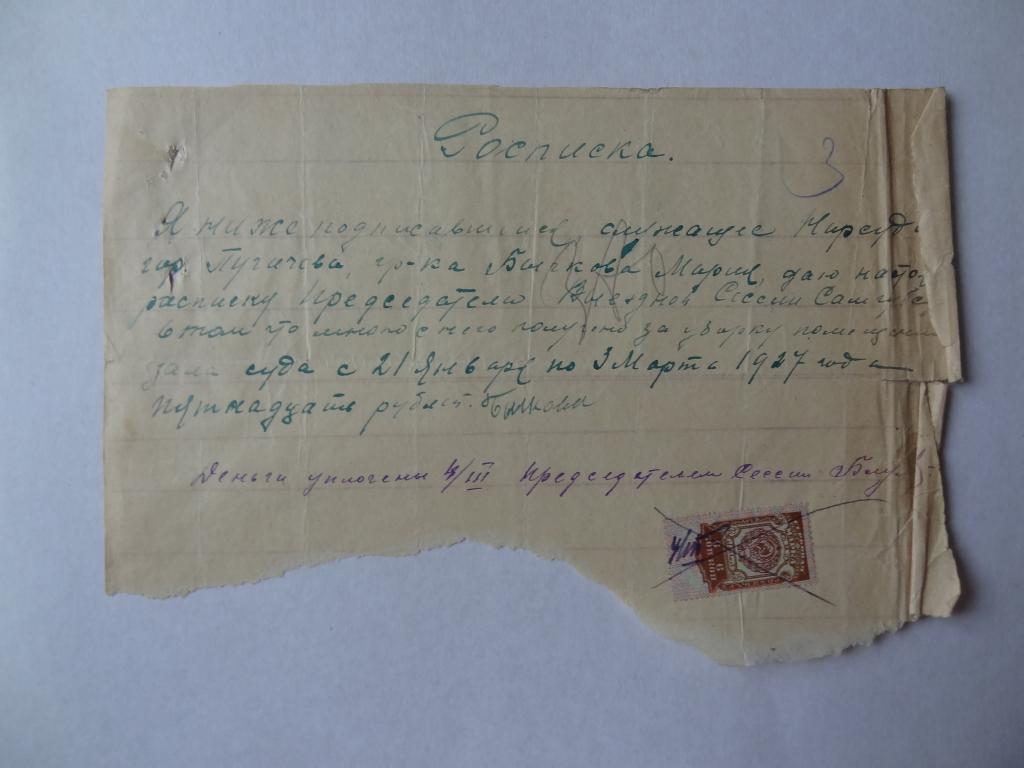 Росписка.
3
Я ниже подписавшиеся, служащие Нарсуда
гор. Пугачева, гр-ка Бычкова Мария, даю насто
расписку Председателю Выездной Сессии Самгуб
в том что мною с него получено за уборку помещения
зала суда с 21 Января по 3 Марта 1927 года
пятнадцать рублей. Бычкова
Деньги уплочены 4/III Председателем Сессии
4/III